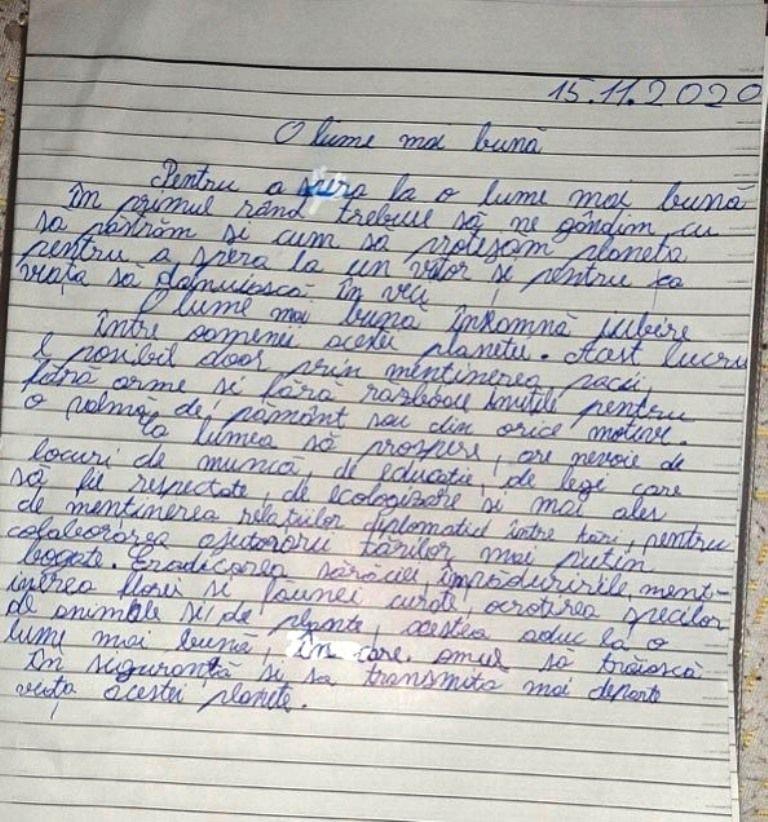 15.11.2020
O lume mai bună
Pentru a spera la o lume mai bună
în primul rând trebuie să ne gândim cu
să păstrăm și cum să protejăm planeta
pentru a spera la un viitor și pentru ca
viața să dăinuiască în veci
O lume mai bună înseamnă iubire
între oamenii acestei planete. Acest lucru
e posibil doar prin menținerea păcii,
fără arme și fără războaie inutile pentru
o palmă de pământ sau din orice motive.
Ca lumea să prospere, are nevoie de
locuri de muncă, de educație, de legi care
să fie respectate, de ecologizare și mai ales
de menținerea relațiilor diplomatice între țări, pentru
colaborarea ajutorării țărilor mai puțin
bogate. Eradicarea sărăciei, împăduririle, menț-
inerea florei și faunei curate, ocrotirea speciilor
de animale și de plante, acestea aduc la o
lume mai bună, în care omul să trăiască
în siguranță și să transmită mai departe
viața acestei planete.